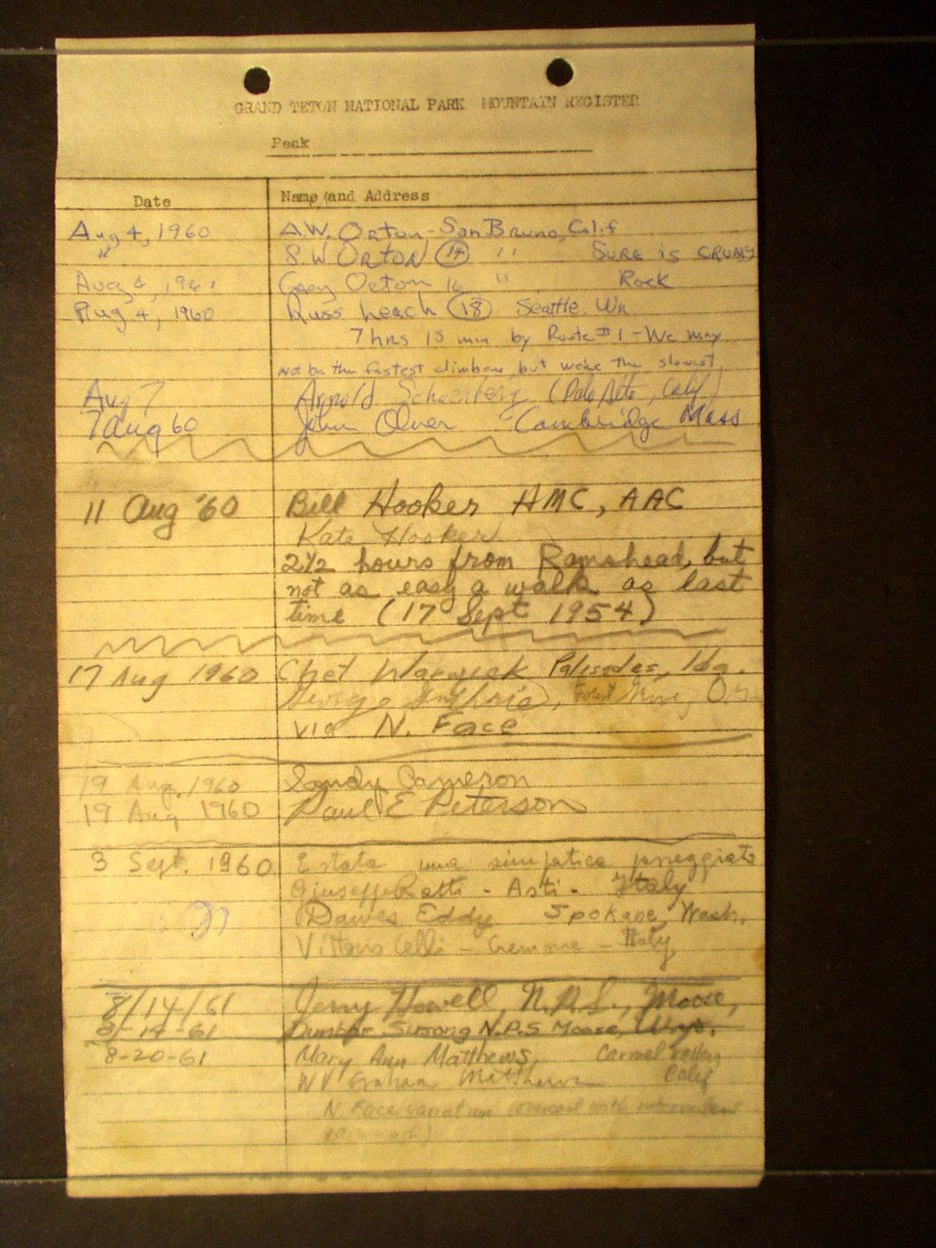 GRAND TETON NATIONAL PARK MOUNTAIN REGISTER
Peak
Date Name and Address
Aug 4, 1960 A.W. Orton - San Bruno, Calif
" S W ORTON 14 " SURE is CRUMY
Aug 4, 196 Gary Orton 16 " Rock
Aug 4, 1960 Russ Leach 18 Seattle, Wn
7 hrs 15 min by Route #1 - We may
not be the fastest climbers, but we're the slowest.
Aug 7 Arnold Schoenberg (Palo Alto, Calif)
7 Aug 60 John Oliver Cambridge Mass
11 Aug '60 Bill Hooker HMC, AAC
Kate Hooker
2½ hours from Ramshead, but
not as easy a walk as last
time (17 Sept 1954)
17 Aug 1960 Chet Warwick Palisades, Ida.
George, Forest
via N. Face
19 Aug, 1960 Sandy Cameron
19 Aug 1960 Paul E Peterson
3 Sept. 1960 E stata una simpatica
Giuseppe Ratti - Asti - Italy
Dawes Eddy Spokane, Wash.
Vittorio - Cremona - Italy
8/14/61 Jerry Howell, N.P.S., Moose,
8-14-61 Dunbar Susong N.P.S Moose, Wyo.
8-20-61 Mary Ann Matthews, Carmel Valley
WV Graham Matthews Calif
N. Face variation overcast with intermittent